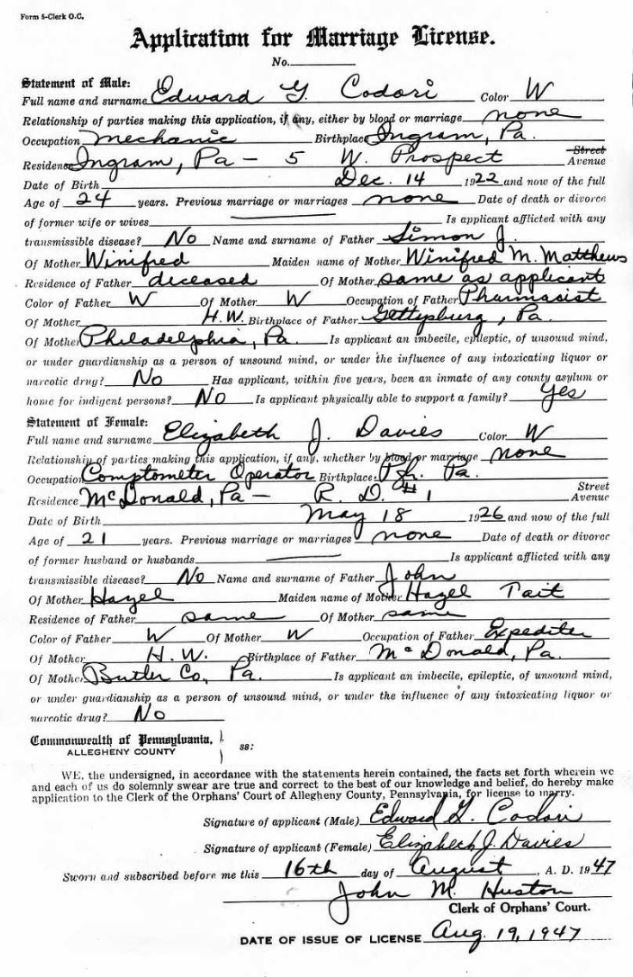 Form 5-Clerk O.C.
Application for Marriage License.
No.
Statement of Male:
Full name and surname Edward G. Codori Color W
Relationship of parties making this application, if any, either by blood or marriage none
Occupation Mechanic Birthplace Ingram, Pa.
Street
Residence Ingram, Pa - 5 W. Prospect Avenue
Date of Birth Dec. 14 1922 and now of the full
Age of 24 years. Previous marriage or marriages none Date of death or divorce
of former wife or wives Is applicant afflicted with any
transmissible disease? No Name and surname of Father Simon J.
Of Mother Winifred Maiden name of Mother Winifred M. Matthews
Residence of Father deceased Of Mother same as applicant
Color of Father W Of Mother W Occupation of Father Pharmasist
Of Mother H.W. Birthplace of Father Gettysburg, Pa.
Of Mother Philadelphia, Pa. Is applicant an imbecile, epileptic, of unsound mind,
or under guardianship as a person of unsound mind, or under the influence of any intoxicating liquor or
narcotic drug? No Has applicant, within five years, been an inmate of any county asylum or
home for indigent persons? No Is applicant physically able to support a family? Yes
Statement of Female:
Full name and surname Elizabeth J. Davies Color W
Relationship of parties making this application, if any, whether by blood or marriage none
Occupation Comptometer Operator Birthplace Pa.
Street
Residence McDonald, Pa - R. D. #1 Avenue
Date of Birth May 18 1926 and now of the full
Age of 21 years. Previous marriage or marriages none Date of death or divorce
of former husband or husbands Is applicant afflicted with any
transmissible disease? No Name and surname of Father John
Of Mother Hazel Maiden name of Mother Hazel Tait
Residence of Father same Of Mother same
Color of Father W Of Mother W Occupation of Father Expediter
Of Mother H.W. Birthplace of Father McDonald, Pa.
Of Mother Butler Co, Pa. Is applicant an imbecile, epileptic, of unsound mind,
or under guardianship as a person of unsound mind, or under the influence of any intoxicating liquor or
narcotic drug? No
Commonwealth of Pennsylvania,
ALLEGHENY COUNTY ss:
WE, the undersigned, in accordance with the statements herein contained, the facts set forth wherein we
and each of us do solemnly swear are true and correct to the best of our knowledge and belief, do hereby make
application to the Clerk of the Orphans' Court of Allegheny County, Pennsylvania, for license to marry.
Signature of applicant (Male) Edward G. Codori
Signature of applicant (Female) Elizabeth J. Davies
Sworn and subscribed before me this 16th day of August, A. D. 1947
John M. Huston
Clerk of Orphans' Court.
DATE OF ISSUE OF LICENSE Aug. 19, 1947